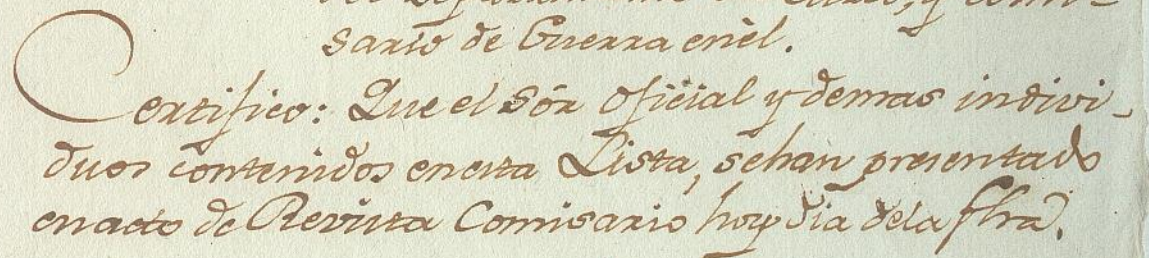 sario de Guerra enèl.
Certifico: Que el Sór Oficial y demas indivi-
duos contenidos enesta Lista, sehan presentado
enacto de Revista Comisario hoy dia dela fhã.